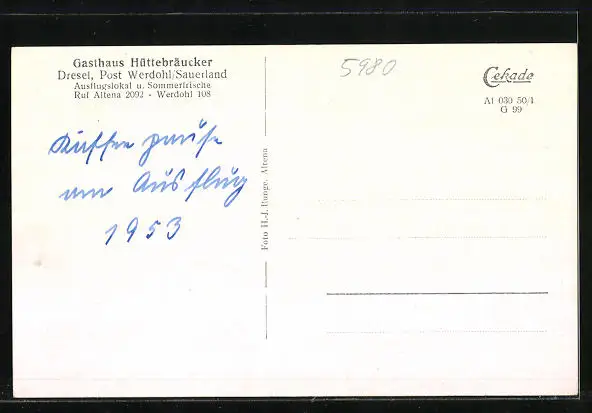 Gasthaus Hüttebräucker
Dresel, Post Werdohl/Sauerland
Ausflugslokal u. Sommerfrische
Ruf Altena 2092 - Werdohl 108
Kaffee pause
am Ausflug
1953
Foto H.-J. Runge, Altena
5980
Cekade
Al 030 50/1
G 99